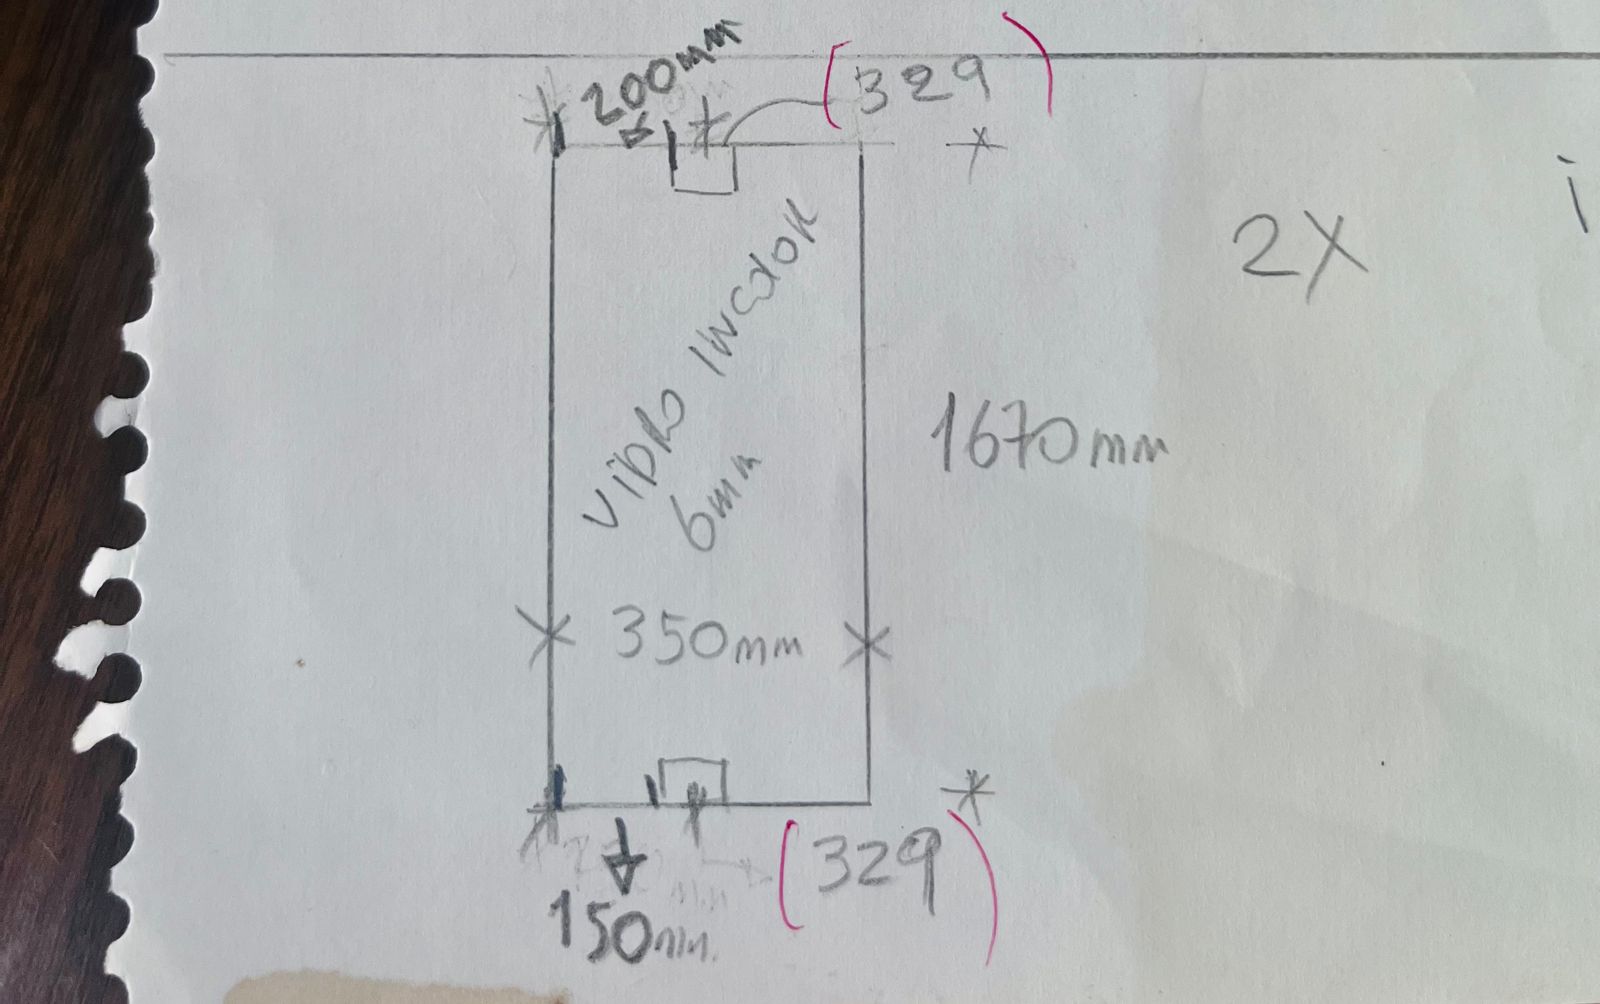 200mm
(329)
2X
VIDRO INCOLOR
6mm
1670mm
350mm
(329)
150mm.